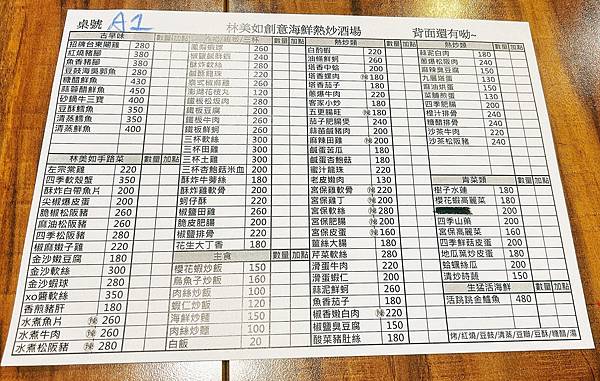 桌號 A1 林美如創意海鮮熱炒酒場 背面還有呦~
古早味 數量 加點
招牌台東閹雞 280
紅燒豬腳 380
魚香豬腳 380
豆豉海吳郭魚 280
糖醋鮮魚 430
蒜蓉醋鮮魚 450
砂鍋牛三寶 400
豆酥鱈魚 350
清蒸鱈魚 350
清蒸鮮魚 400
林美如手路菜 數量 加點
左宗棠雞 220
四季軟殼蟹 350
酥炸白帶魚片 200
尖椒爆皮蛋 200
脆椒松阪豬 260
麻油松阪豬 260
四季松阪豬 280
椒麻嫩子雞 220
金沙嫩豆腐 180
金沙軟絲 300
金沙蝦球 280
xo醬軟絲 350
香煎豬肝 180
水煮魚片 辣 260
水煮牛肉 辣 260
水煮松阪豬 辣 280
數量 加點
鳳梨蝦球 260
椒鹽鹹酥蝦 240
酥炸軟絲 280
鹹酥雞踓 220
泰式椒麻雞 260
澎湖花枝丸 120
鐵板松坂肉 280
鐵板豆腐 180
鐵板牛肉 220
鐵板鮮蚵 220
三杯軟絲 280
三杯田雞 280
三杯土雞 330
三杯杏鮑菇米血 200
酥炸牛蒡絲 180
酥炸雞軟骨 200
蚵仔酥 220
椒鹽田雞 260
脆皮肥腸 200
椒鹽排骨 220
花生大丁香 180
主食 數量 加點
櫻花蝦炒飯 150
烏魚子炒飯 160
肉絲炒飯 100
蝦仁炒飯 120
海鮮炒麵 150
肉絲炒麵 100
白飯 20
熱炒類 數量 加點
白酌蝦 220
油條鮮蚵 260
塔香中蛤 200
塔香螺肉 辣 180
塔香茄子 180
蔥爆牛肉 220
客家小炒 180
五更腸旺 辣 180
茄子肥腸煲 240
蒜苗鹹豬肉 200
麻辣田雞 辣 280
鹹蛋苦瓜 180
鹹蛋杏鮑菇 180
蜜汁龍珠 220
老皮嫩肉 130
宮保雞軟骨 辣 220
宮保雞丁 辣 200
宮保軟絲 辣 280
宮保皮蛋 辣 160
薑絲大腸 180
芹菜軟絲 280
滑蛋牛肉 220
滑蛋蝦仁 200
蒜泥鮮蚵 260
魚香茄子 180
椒香嫩白肉 辣 190
椒鹽臭豆腐 150
酸菜豬肚絲 180
熱炒類 數量 加點
蒜泥白肉 180
蔥爆松阪肉 240
麻辣臭豆腐 150
九層塔蛋 130
麻油烘蛋 150
菜脯煎蛋 130
四季肥腸 200
橙汁排骨 240
糖醋排骨 240
沙茶牛肉 220
沙茶松阪豬 240
青菜類 數量 加點
樹子水蓮 180
櫻花蝦高麗菜 180
四季山藥 200
宮保高麗菜 160
四季鮮菇皮蛋 180
地瓜葉炒皮蛋 180
蛤蠣絲瓜 200
清炒時蔬 150
生猛活海鮮 數量 加點
活跳跳金鱸魚 480
烤/紅燒/豆豉/清蒸/豆瓣/豆酥/糖醋/湯